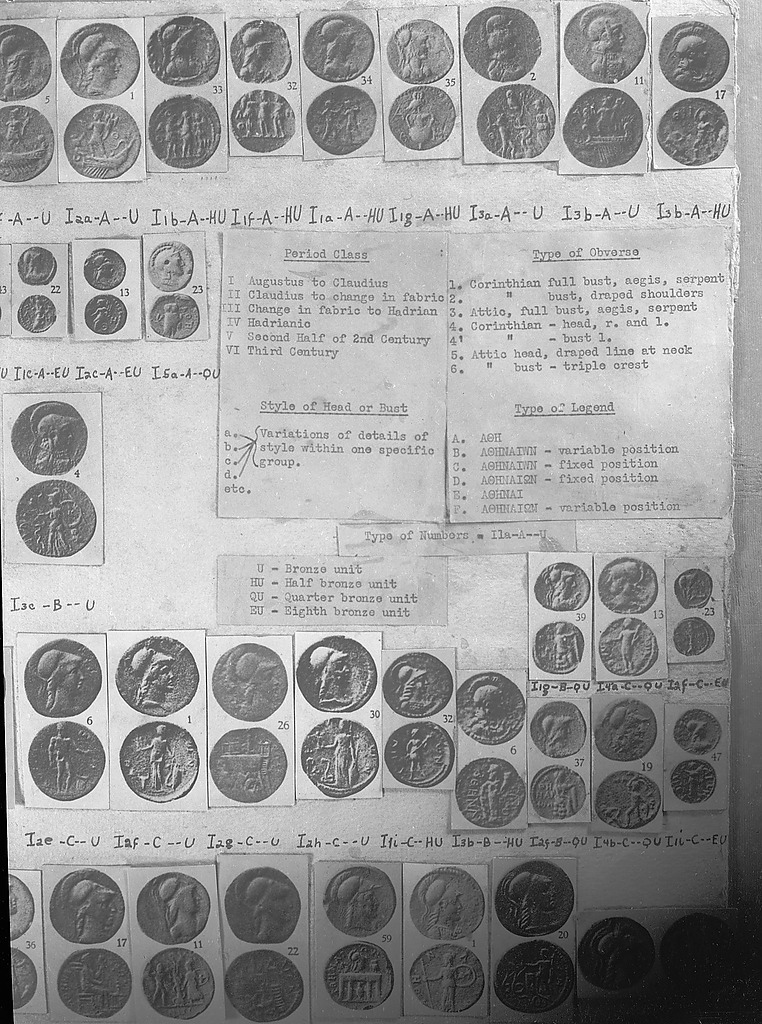 5 1 33 32 34 35 2 11 17
-A--U I2a-A--U I1b-A--HU I1f-A--HU I1a-A--HU I1g-A--HU I3a-A--U I3b-A--U I3b-A--HU
43 22 13 23
U I1c-A--EU I2c-A--EU I5a-A--QU
Period Class
I Augustus to Claudius
II Claudius to change in fabric
III Change in fabric to Hadrian
IV Hadrianic
V Second Half of 2nd Century
VI Third Century
Style of Head or Bust
a. Variations of details of
b. style within one specific
c. group.
d.
etc.
Type of Obverse
1. Corinthian full bust, aegis, serpent
2. " bust, draped shoulders
3. Attic, full bust, aegis, serpent
4. Corinthian - head, r. and l.
4' " - bust l.
5. Attic head, draped line at neck
6. " bust - triple crest
Type of Legend
A. ΑΘΗ
B. ΑΘΗΝΑΙWΝ - variable position
C. ΑΘΗΝΑΙWΝ - fixed position
D. ΑΘΗΝΑΙΩΝ - fixed position
E. ΑΘΗΝΑΙ
F. ΑΘΗΝΑΙΩΝ - variable position
Type of Numbers = I1a-A--U
U - Bronze unit
HU - Half bronze unit
QU - Quarter bronze unit
EU - Eighth bronze unit
4
I3c-B--U
39 13 23
I1g-B-QU I4a-C--QU I2f-C--EU
6 1 26 30 32 6 37 19 47
I2e-C--U I2f-C--U I2g-C--U I2h-C--U I1i-C--HU I3b-B--HU I2f-B--QU I4b-C--QU I1i-C--EU
36 17 11 22 59 1 20